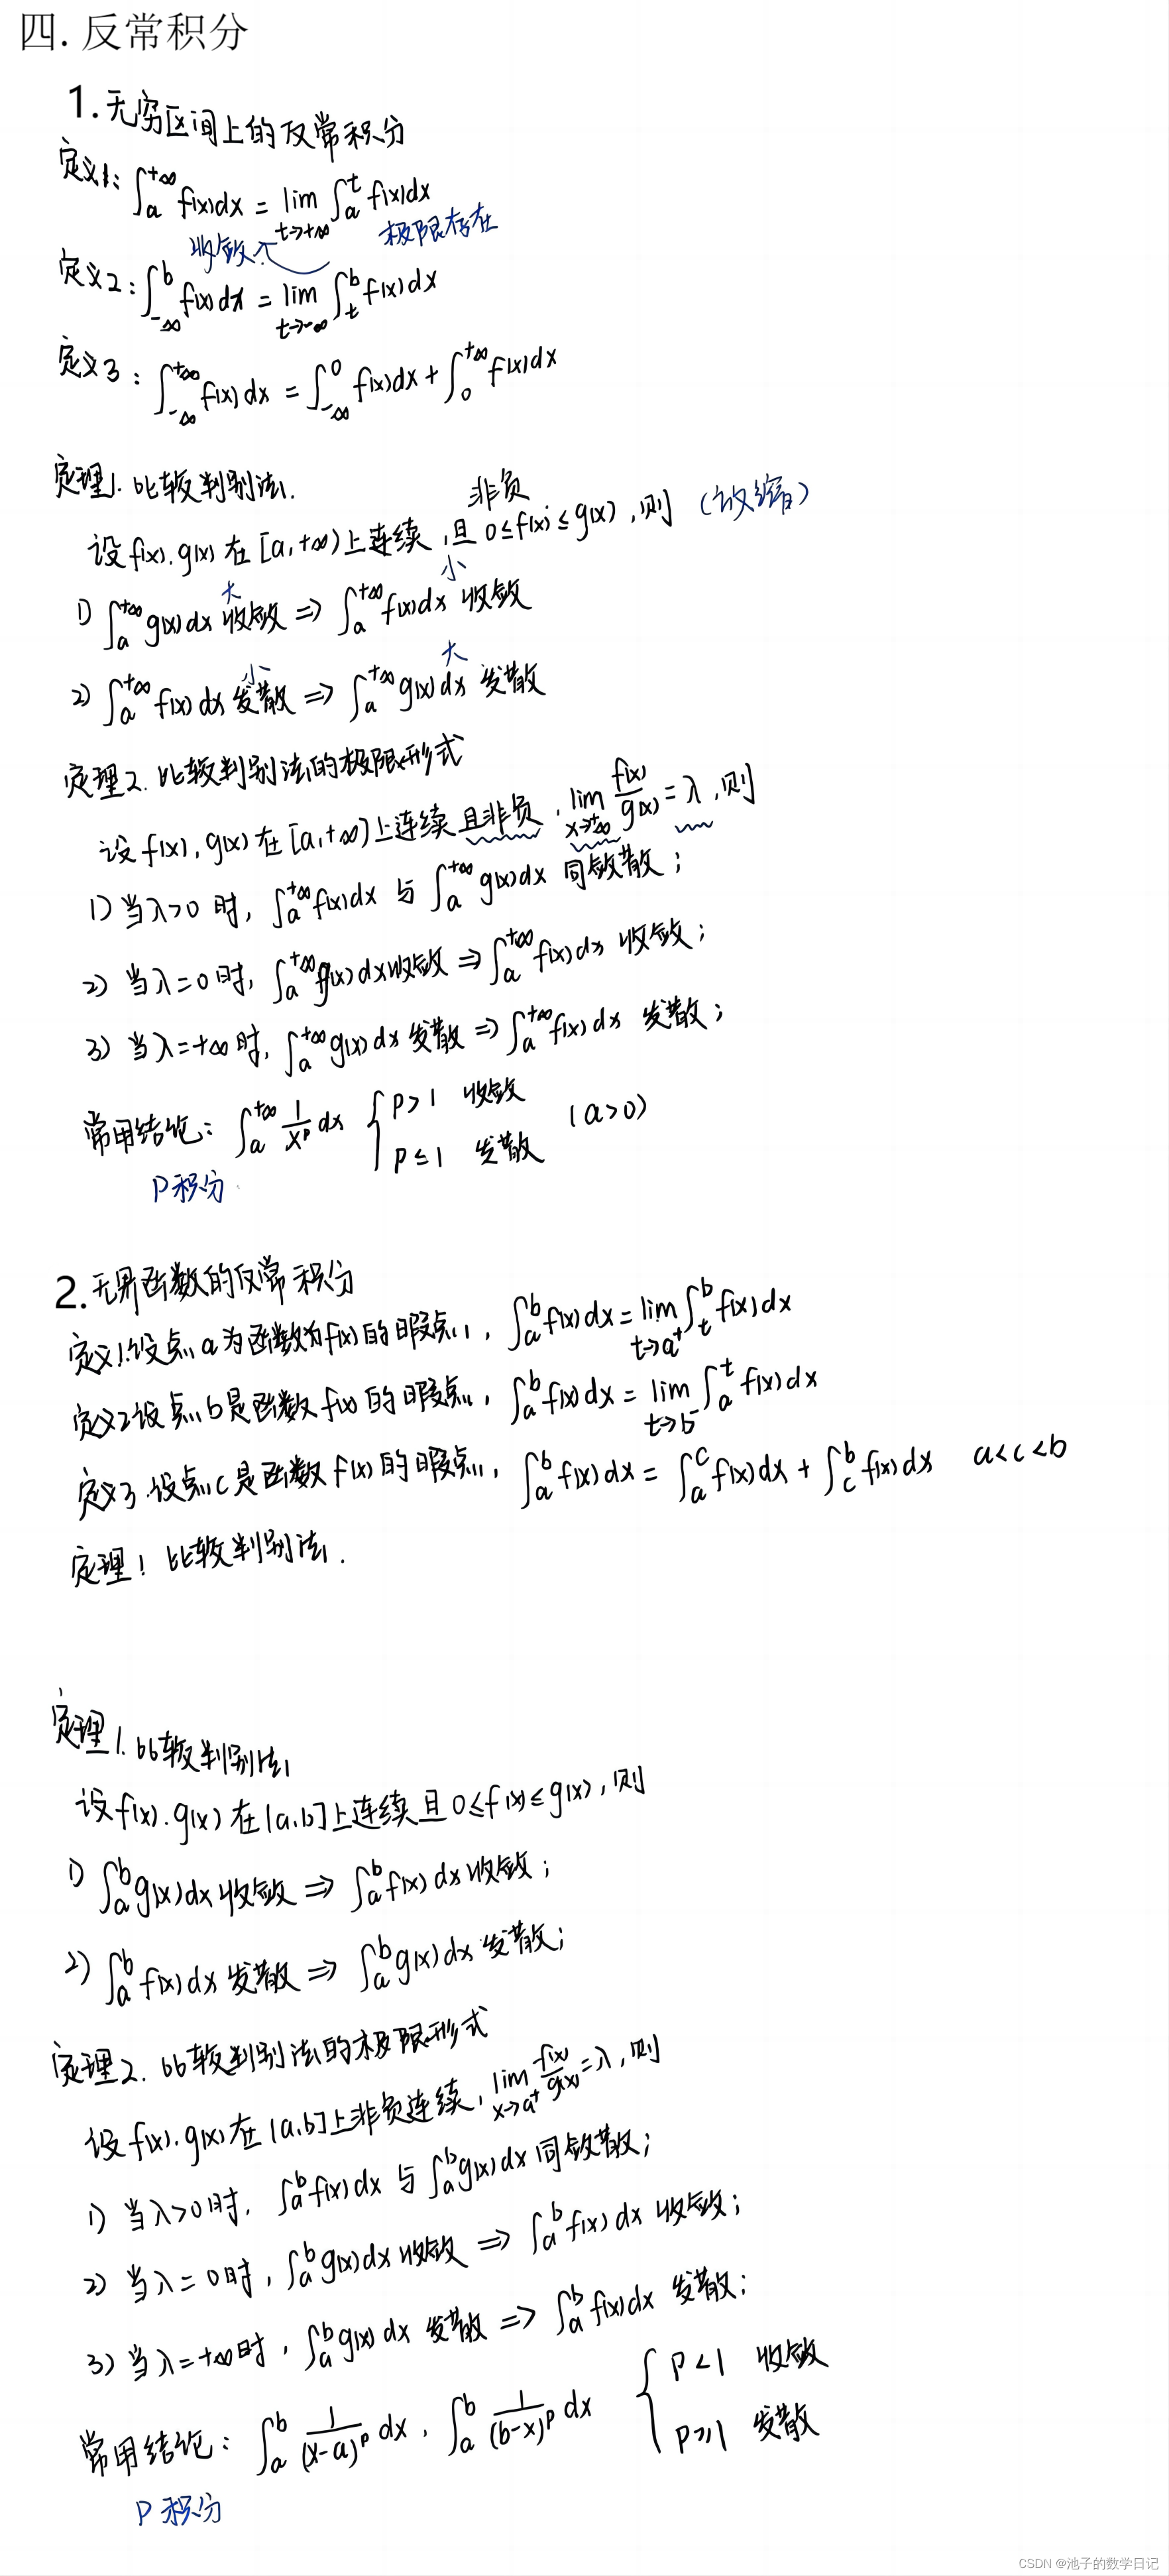 四. 反常积分
1. 无穷区间上的反常积分
定义1: ∫_a^{+∞} f(x)dx = lim_{t→+∞} ∫_a^t f(x)dx
收敛 极限存在
定义2: ∫_{-∞}^b f(x)dx = lim_{t→-∞} ∫_t^b f(x)dx
定义3: ∫_{-∞}^{+∞} f(x)dx = ∫_{-∞}^0 f(x)dx + ∫_0^{+∞} f(x)dx
定理1. 比较判别法.
非负
设f(x).g(x)在[a,+∞)上连续,且0≤f(x)≤g(x),则 (放缩)
大 小
1) ∫_a^{+∞} g(x)dx 收敛 ⇒ ∫_a^{+∞} f(x)dx 收敛
小 大
2) ∫_a^{+∞} f(x)dx 发散 ⇒ ∫_a^{+∞} g(x)dx 发散
定理2. 比较判别法的极限形式
设f(x),g(x)在[a,+∞)上连续且非负,lim_{x→+∞} f(x)/g(x) = λ,则
1) 当λ>0时, ∫_a^{+∞} f(x)dx 与 ∫_a^{+∞} g(x)dx 同敛散;
2) 当λ=0时, ∫_a^{+∞} g(x)dx 收敛 ⇒ ∫_a^{+∞} f(x)dx 收敛;
3) 当λ=+∞时, ∫_a^{+∞} g(x)dx 发散 ⇒ ∫_a^{+∞} f(x)dx 发散;
常用结论: ∫_a^{+∞} 1/x^p dx { p>1 收敛 (a>0)
p≤1 发散
P积分
2. 无界函数的反常积分
定义1.设点a为函数为f(x)的暇点, ∫_a^b f(x)dx = lim_{t→a⁺} ∫_t^b f(x)dx
定义2设点b是函数f(x)的暇点, ∫_a^b f(x)dx = lim_{t→b⁻} ∫_a^t f(x)dx
定义3.设点c是函数f(x)的暇点, ∫_a^b f(x)dx = ∫_a^c f(x)dx + ∫_c^b f(x)dx a<c<b
定理1 比较判别法.
定理1. 比较判别法
设f(x).g(x)在(a.b]上连续且0≤f(x)≤g(x),则
1) ∫_a^b g(x)dx 收敛 ⇒ ∫_a^b f(x)dx 收敛;
2) ∫_a^b f(x)dx 发散 ⇒ ∫_a^b g(x)dx 发散;
定理2. 比较判别法的极限形式
设f(x).g(x)在(a.b]上非负连续,lim_{x→a⁺} f(x)/g(x) = λ,则
1) 当λ>0时, ∫_a^b f(x)dx 与 ∫_a^b g(x)dx 同敛散;
2) 当λ=0时, ∫_a^b g(x)dx 收敛 ⇒ ∫_a^b f(x)dx 收敛;
3) 当λ=+∞时, ∫_a^b g(x)dx 发散 ⇒ ∫_a^b f(x)dx 发散;
常用结论: ∫_a^b 1/(x-a)^p dx, ∫_a^b 1/(b-x)^p dx { p<1 收敛
p≥1 发散
P积分
CSDN @池子的数学日记